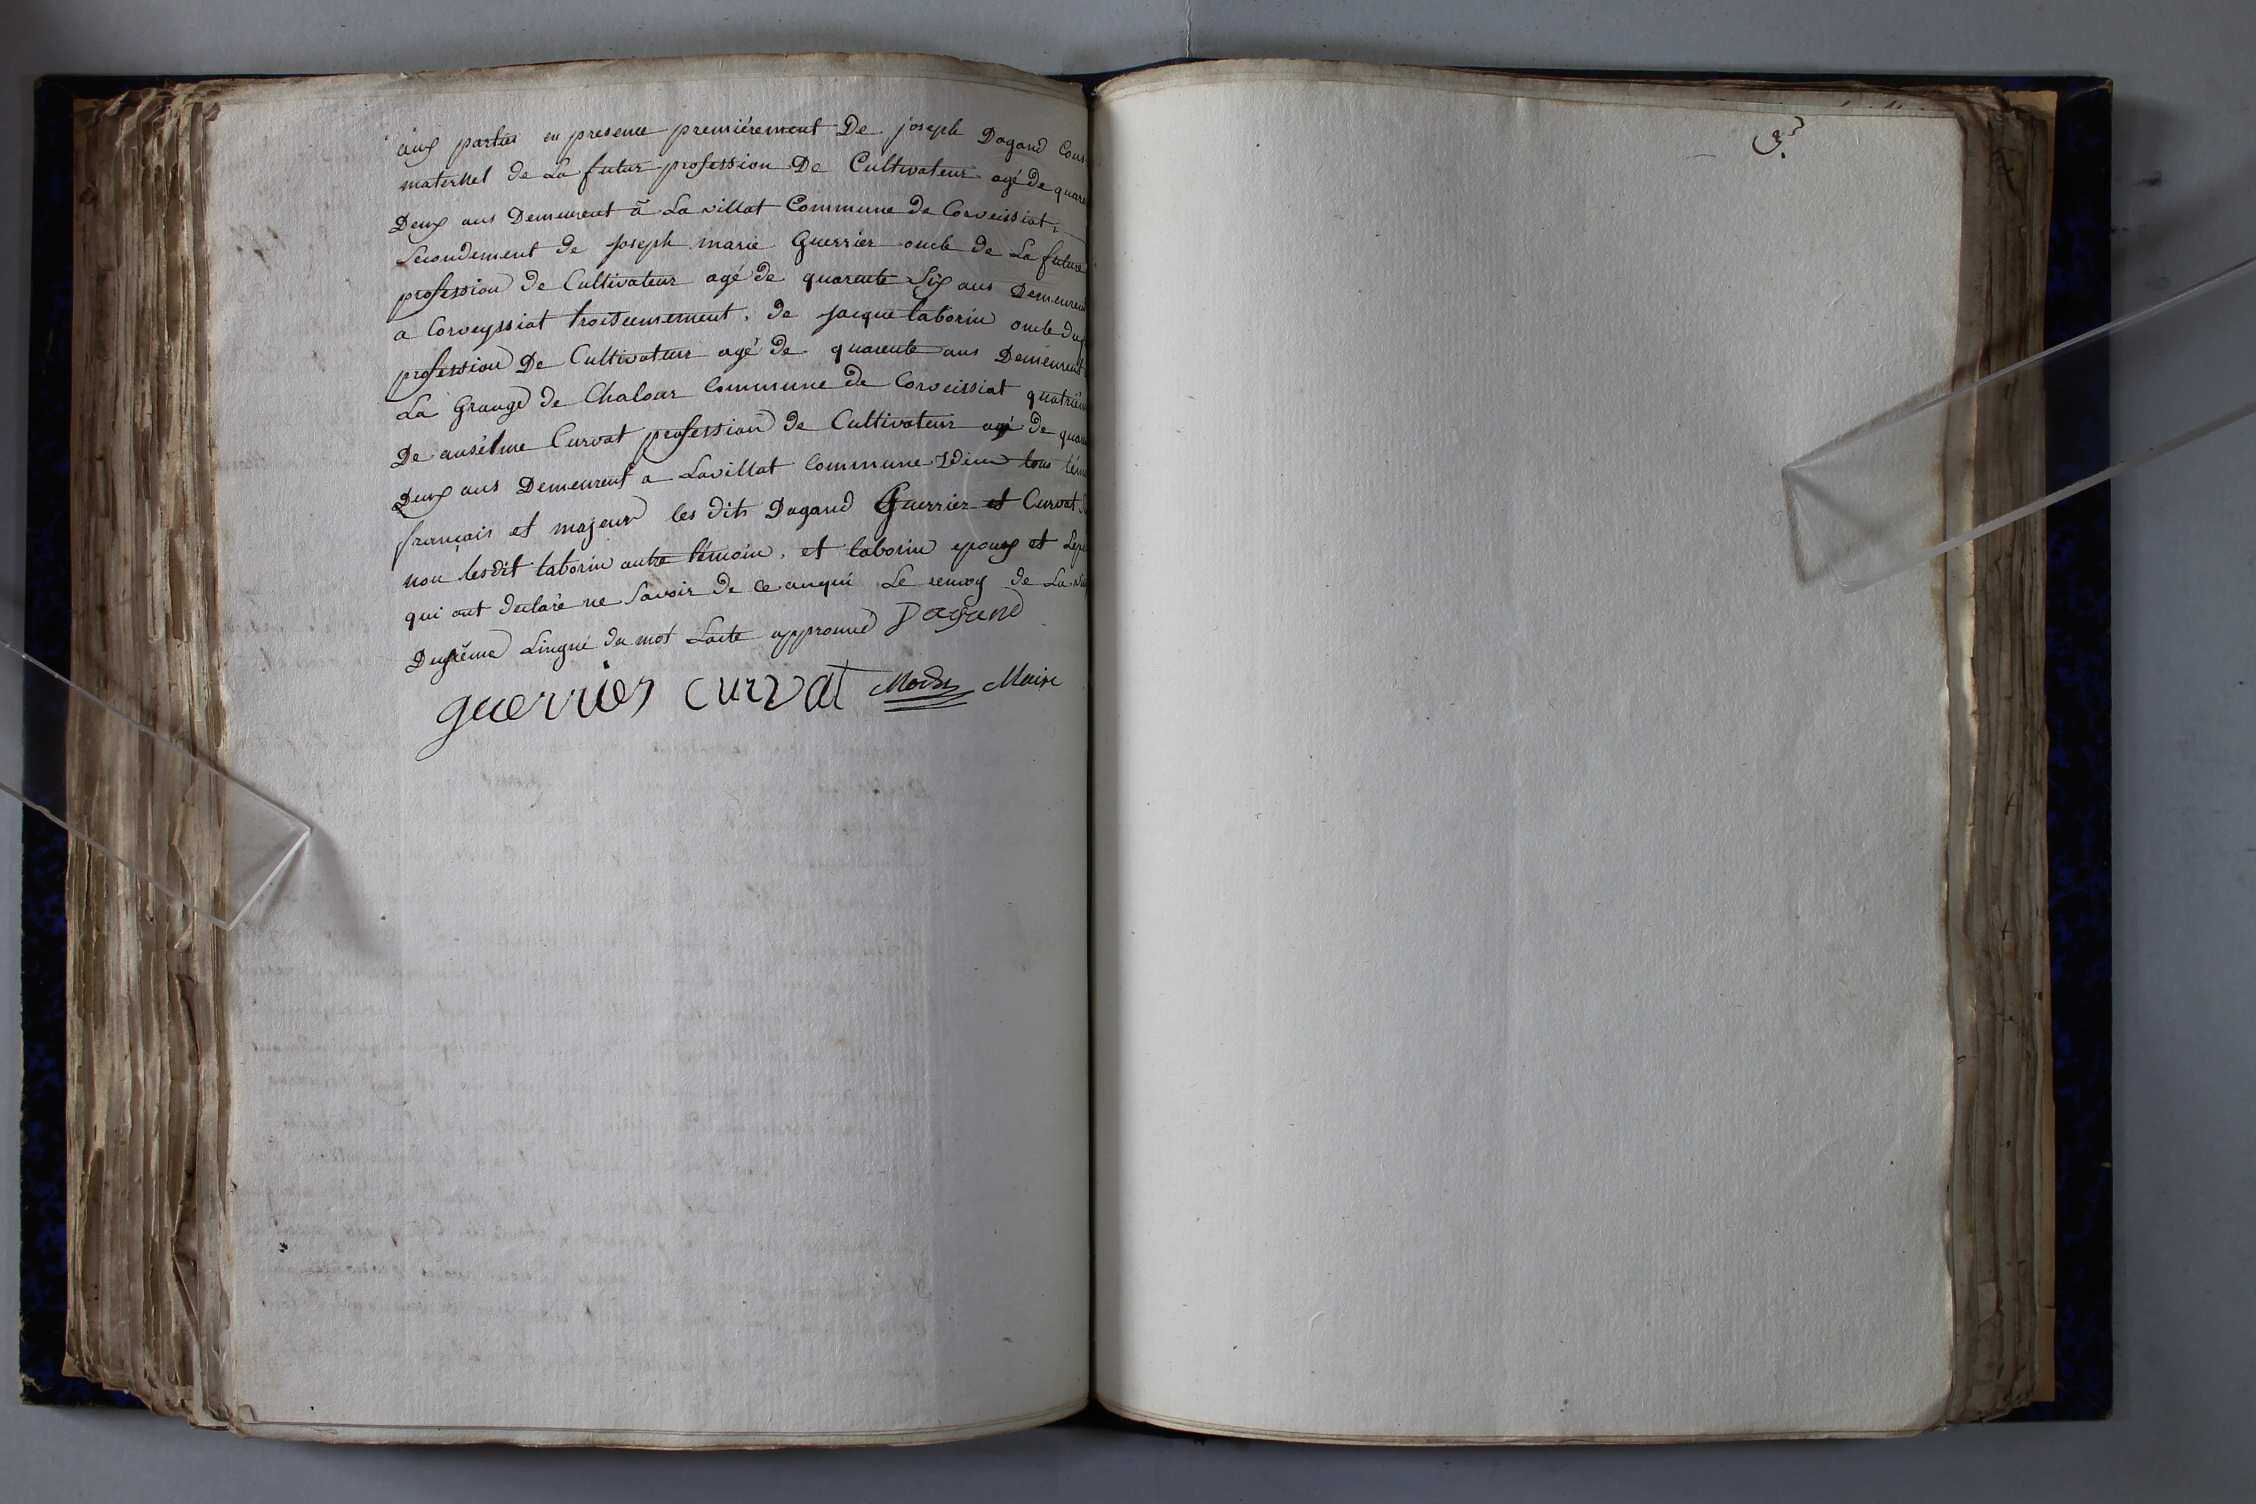 aux parties en presence premiérement De joseph Dagand Cous
maternel de La futur profession De Cultivateur agé de quare
Deux ans Demeurent à La villat Commune de Corveissiat
Secondement de joseph marie Guerrier oncle de La future
profession de Cultivateur agé de quarente Six ans Demeuren
a Corveyssiat troisiemement, de jacque taborin oncle du
profession De Cultivateur agé de quarente ans Demeurent
La Grange de Chalour Commune de Corveissiat quatrié
De ansélme Curvat profession de Cultivateur agé de quar
Deux ans Demeurent a Lavillat Commune Idem tous tém
français et majeur les dits Dagand Guerrier et Curvat
non lesdit taborin autre témoin, et taborin epoux et Lep
qui ont declaré ne Savoir de ce anqui Le renvoy de La
Dugiéme Lingne du mot Lacte approuvé Dagand
guerrier curvat Maire
3